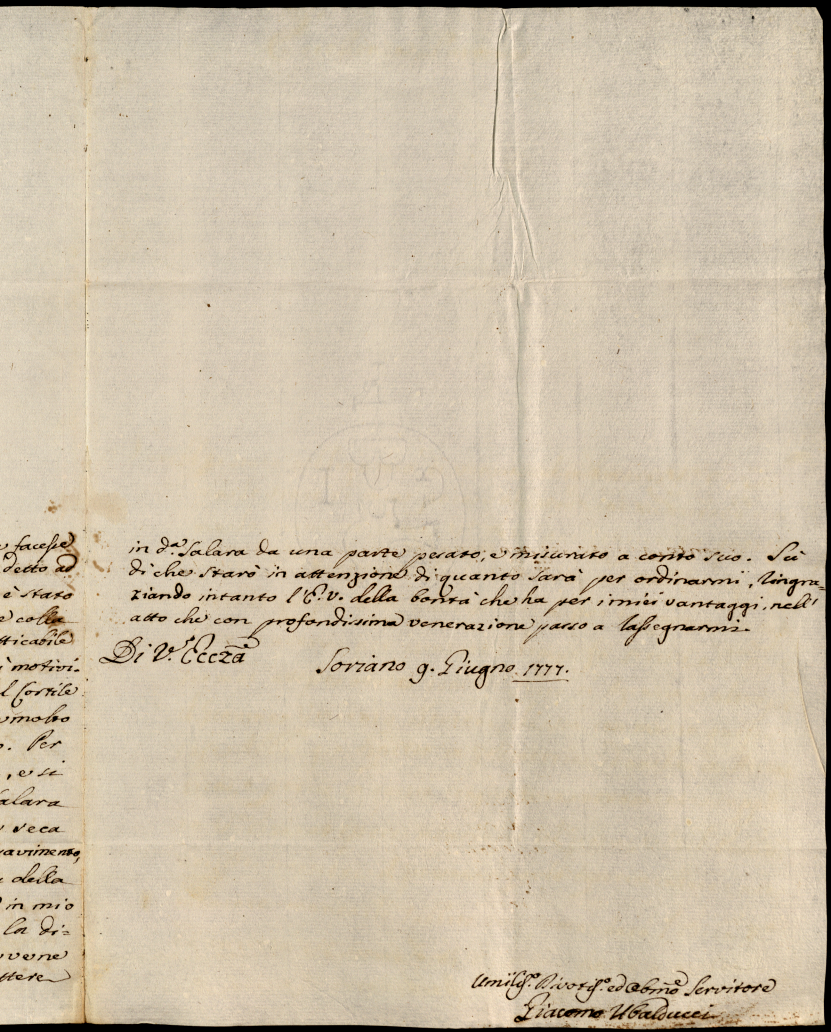 e facesse
detto ad
è stato
e colla
tticabile
i motivi.
l Cortile
molto
o. Per
, e si
alara
seca
pavimento,
e della
in mio
la di=
vene
ttere
in d.ª Salara da una parte pesato, e misurato a conto suo. Sù
di che starò in attenzione di quanto sarà per ordinarmi, ringra=
ziando intanto l'E. V. della bontà che ha per i miei vantaggi, nell'
atto che con profondissima venerazione passo a rassegnarmi.
Di V.ª Eccza
Soriano 9. Giugno 1777.
Umiliss.º Divotiss.º ed Obmo Servitore
Giacomo Ubalducci